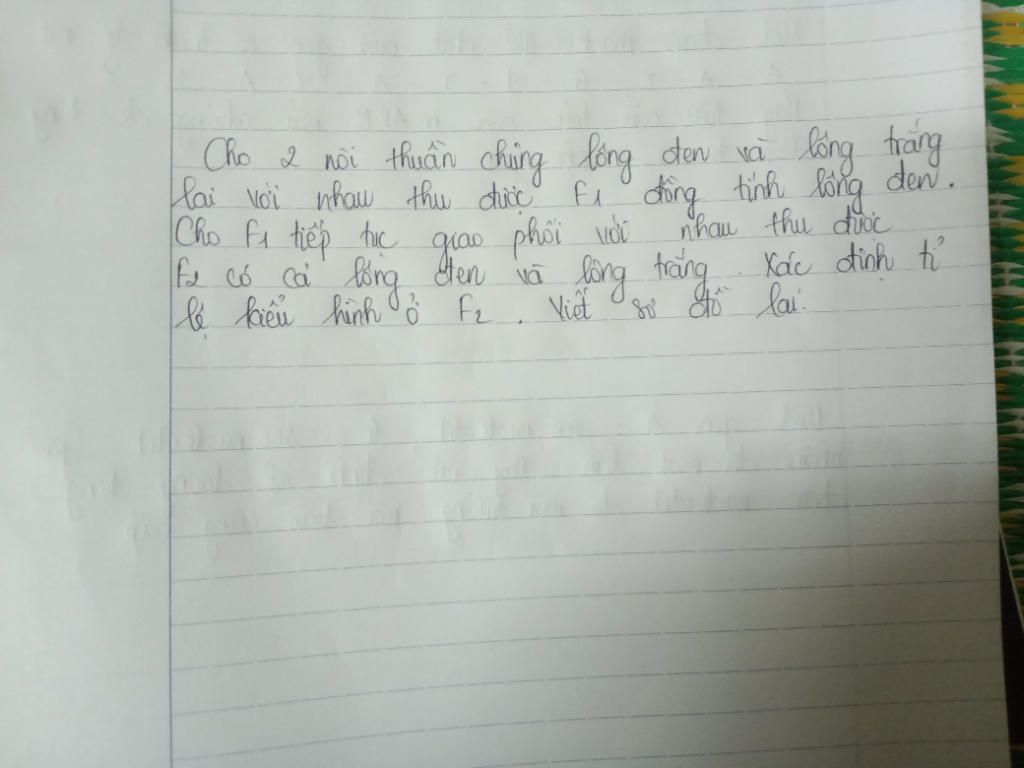 Cho 2 nòi thuần chủng lông đen và lông trắng
lai với nhau thu được F1 đồng tính lông đen.
Cho F1 tiếp tục giao phối với nhau thu được
F2 có cả lông đen và lông trắng. Xác định tỉ
lệ kiểu hình ở F2. Viết sơ đồ lai.